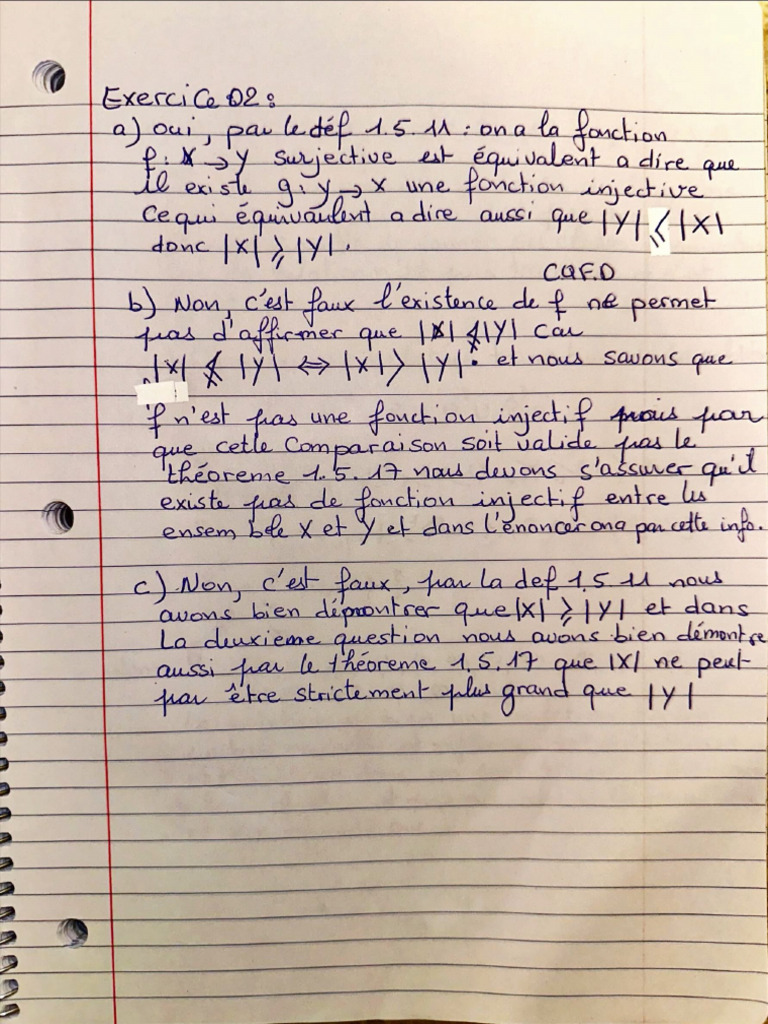 Exercice 02 :
a) oui, par le déf 1.5.11 : on a la fonction
f : X → Y surjective est équivalent a dire que
il existe g : Y → X une fonction injective
Ce qui équivaulent a dire aussi que |Y| ⩽ |X|
donc |X| ⩾ |Y|.
CQFD
b) Non, c'est faux l'existence de f ne permet
pas d'affirmer que |X| ≰ |Y| car
|X| ≰ |Y| ⇔ |X| > |Y| : et nous savons que
f n'est pas une fonction injectif mais par
que cette Comparaison soit valide pas le
théoreme 1.5.17 nous devons s'assurer qu'il
existe pas de fonction injectif entre les
ensemble X et Y et dans l'énoncer ona pas cette info.
c) Non, c'est faux, par la def 1.5.11 nous
avons bien démontrer que |X| ⩾ |Y| et dans
La deuxieme question nous avons bien démontre
aussi par le théoreme 1.5.17 que |X| ne peut
par être strictement plus grand que |Y|